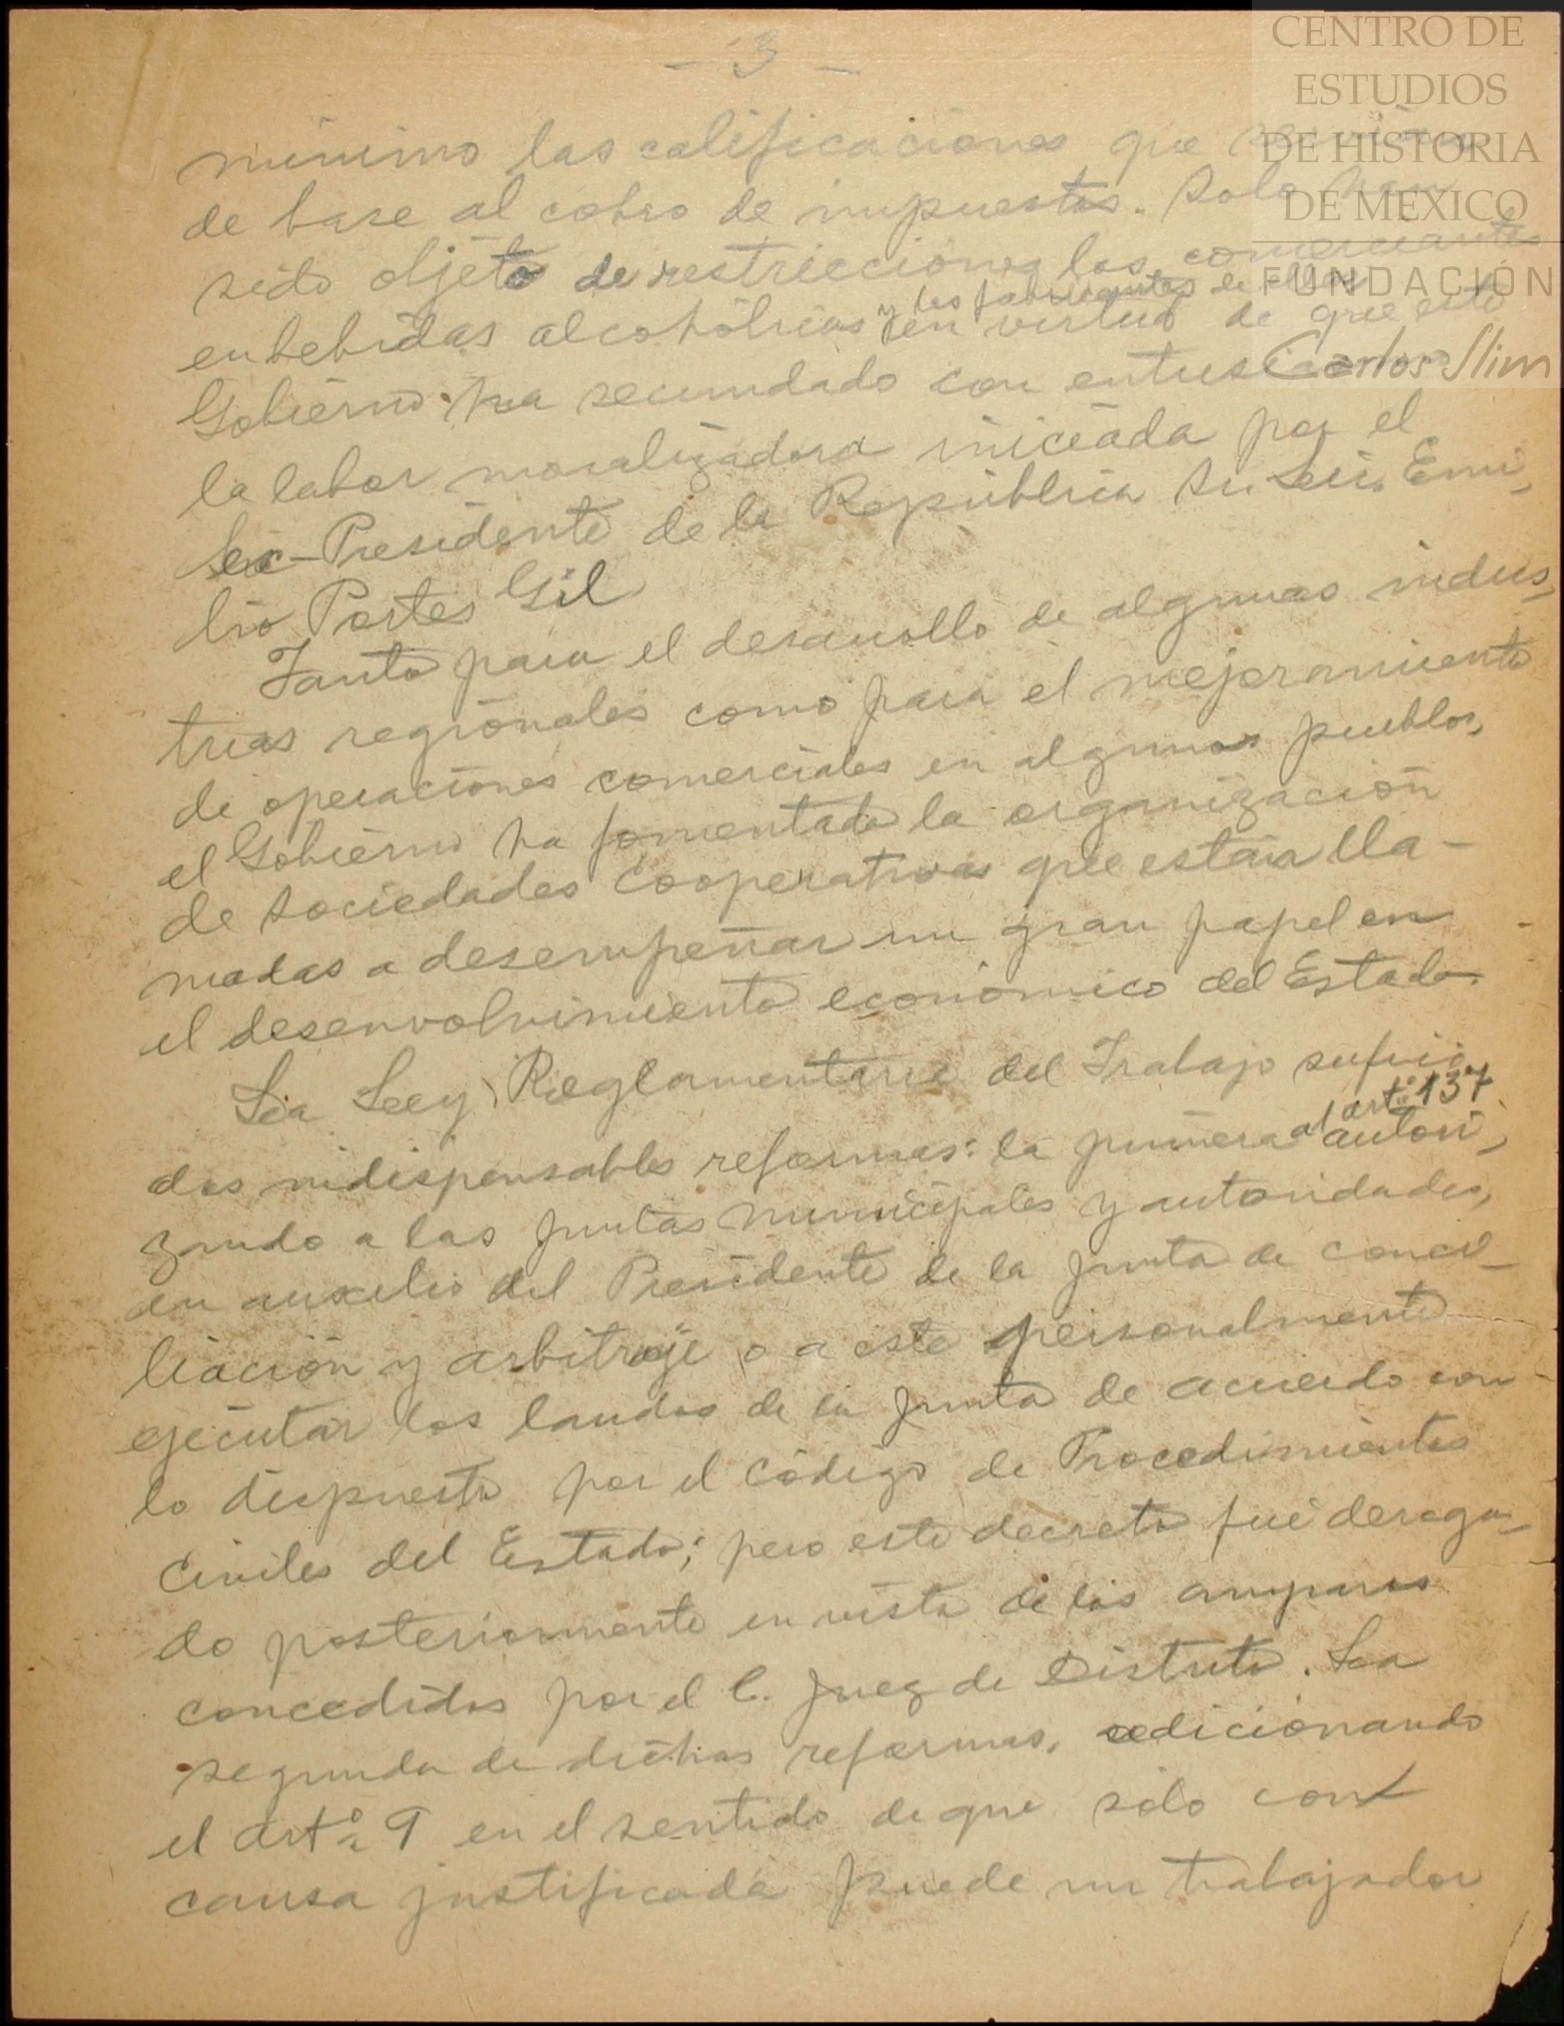 - 3 -
CENTRO DE
ESTUDIOS
DE HISTORIA
DE MEXICO
FUNDACIÓN
Carlos Slim
minimo las calificaciones que
de base al cobro de impuestos. Solo han
sido objeto de restricciones los comerciantes
y los fabricantes de ellas
en bebidas alcohólicas en virtud de que este
Gobierno ha secundado con
la labor moralizadora iniciada por el
Ex-Presidente de la República Sr. Lic. Emi,
lio Portes Gil
Tanto para el desarrollo de algunas indus,
trias regionales como para el mejoramiento
de operaciones comerciales en algunos pueblos,
el Gobierno ha fomentado la organización
de sociedades cooperativas que están lla-
madas a desempeñar un gran papel en
el desenvolvimiento económico del Estado.
La Ley Reglamentaria del Trabajo sufrió
al artº 137
dos indispensables reformas: la primera autori,
zando a las juntas municipales y autoridades,
en auxilio del Presidente de la junta de conci-
liación y arbitraje o a este personalmente
ejecutar los laudos de la junta de acuerdo con
lo dispuesto por el Código de Procedimientos
Civiles del Estado; pero este decreto fué deroga-
do posteriormente en vista de los amparos
concedidos por el C. Juez de Distrito. La
segunda de dichas reformas, adicionando
el artº 9 en el sentido de que sólo con
causa justificada puede un trabajador